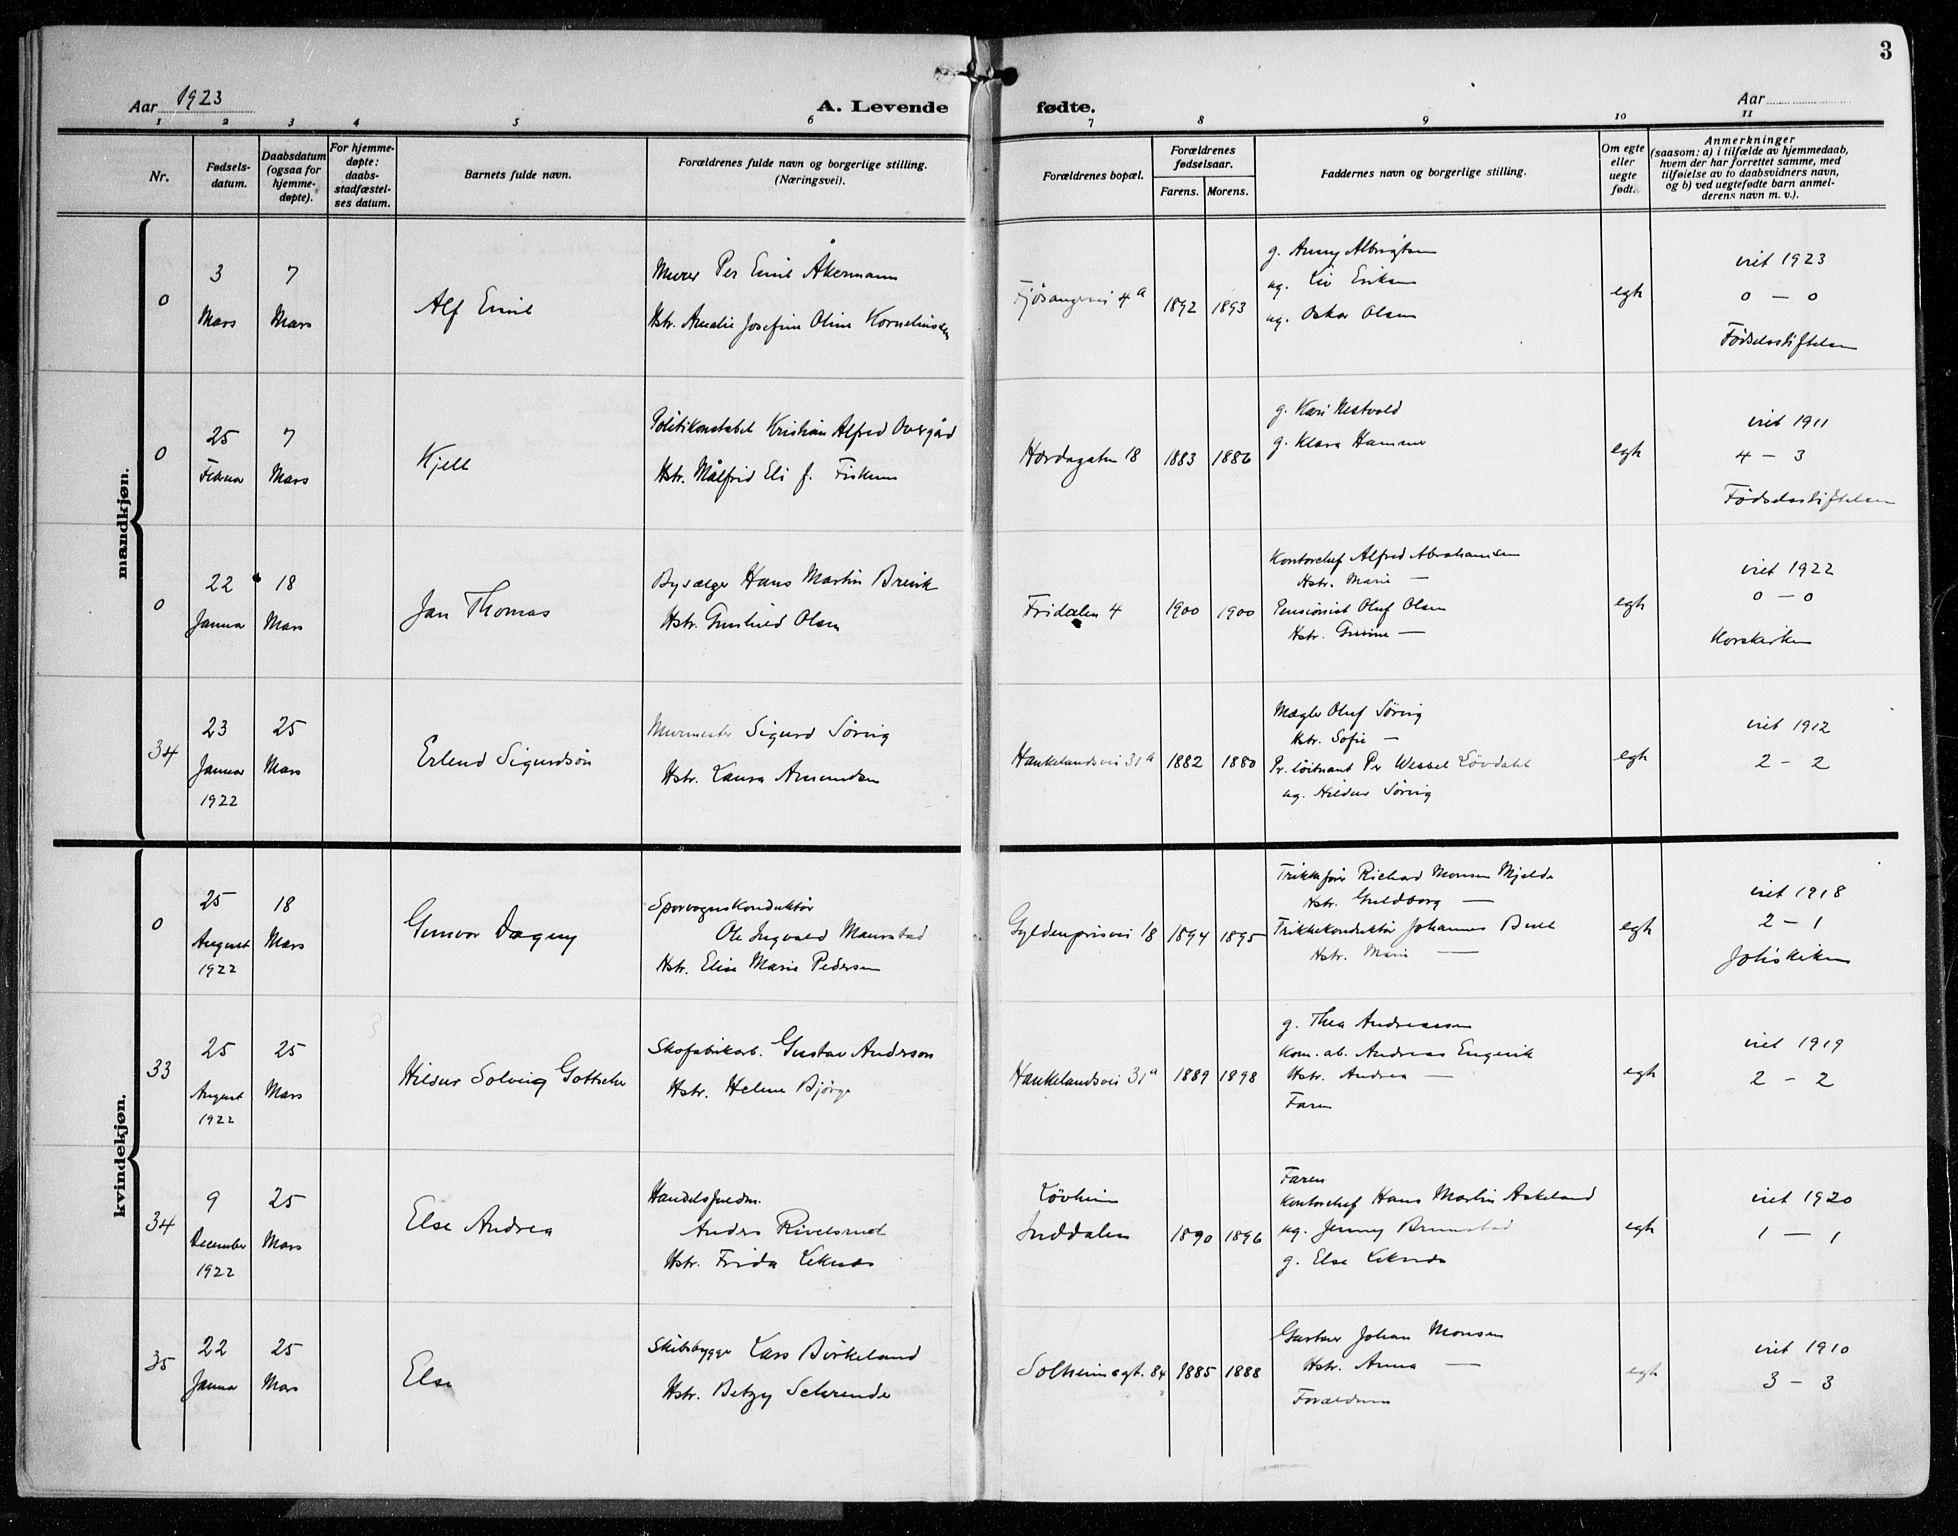 3
Aar 1923
A. Levende fødte.
Aar
1 2 3 4 5 6 7 8 9 10 11
Nr.
Fødsels-
datum.
Daabsdatum
(ogsaa for
hjemme-
døpte).
For hjemme-
døpte:
daabs-
stadfæstel-
ses datum.
Barnets fulde navn.
Forældrenes fulde navn og borgerlige stilling.
(Næringsvei).
Forældrenes bopæl.
Forældrenes
fødselsaar.
Farens. Morens.
Faddernes navn og borgerlige stilling.
Om egte
eller
uegte
født.
Anmerkninger
(saasom: a) i tilfælde av hjemmedaab,
hvem der har forrettet samme, med
tilføielse av to daabsvidners navn,
og b) ved uegtefødte barn anmel-
derens navn m. v.).
mandkjøn.
0
3
Mars
7
Mars
Alf Emil
Murer Per Emil Åkermann
Hstr. Amalie Josefine Oline Korneliussen
Fjøsangervei 4a
1892 1893
g. Anny Albrigtsen
ug. Liv Eriksen
ug. Oskar Olsen
egte
viet 1923
0 — 0
Fødselsstiftelsen
0
25
Februar
7
Mars
Kjell
Politikonstabel Kristian Alfred Overgård
Hstr. Målfrid Eli f. Fiskum
Hordagaten 18
1883 1886
g. Kari Nestvold
g. Klara Hammer
egte
viet 1911
4 — 3
Fødselsstiftelsen
0
22
Januar
18
Mars
Jan Thomas
Bysælger Hans Martin Brevik
Hstr. Gunhild Olsen
Fridalen 4
1900 1900
Kontorchef Alfred Abrahamsen
Hstr. Marie —
Pensionist Oluf Olsen
Hstr. —
egte
viet 1922
0 — 0
Korskirken
34
23
Januar
1922
25
Mars
Erlend Sigurdsøn
Murmester Sigurd Søring
Hstr. Laura Amundsen
Haukelandsvei 31a
1882 1880
Mægler Oluf Søring
Hstr. Sofie —
Pr. løitnant Per Wessel Løvdahl
ug. Hildur Søring
egte
viet 1912
2 — 2
kvindekjøn.
0
25
August
1922
18
Mars
Gunvor Dagny
Sporvognskonduktør
Ole Ingvald Maurstad
Hstr. Elise Marie Pedersen
Gyldenprisvei 18
1894 1895
Trikkefører Richard Monsen Mjelde
Hstr. Guldborg —
Trikkekonduktør Johannes Bull
Hstr. Marie —
egte
viet 1918
2 — 1
Johskirken
33
25
August
1922
25
Mars
Hildur Solveig Gottsche
Skofabrikarb. Gustav Anderson
Hstr. Helene Bjørge
Haukelandsvei 31a
1889 1898
g. Thea Andreassen
Kom. ab. Andreas Engevik
Hstr. Andrea —
Faren
egte
viet 1919
2 — 2
34
9
December
1922
25
Mars
Else Andrea
Handelsfuldm.
Anders Rivelsrud
Hstr. Frida Leknes
Løvheim
Inddalen
1890 1896
Faren
Kontorchef Hans Martin Askeland
ug. Jenny Brunstad
g. Else Leknes
egte
viet 1920
1 — 1
35
22
Januar
25
Mars
Else
Skibsbygger Lars Birkeland
Hstr. Betzy Schrender
Solheimsgt. 84
1885 1888
Gustav Johan Monsen
Hstr. Anna —
Forældrene
egte
viet 1910
3 — 3